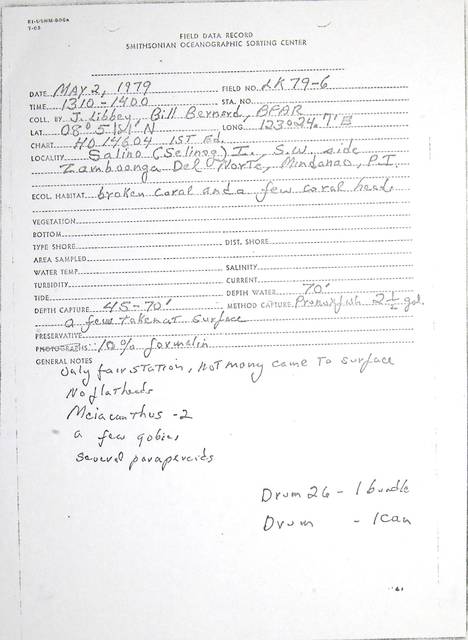 FIELD DATA RECORD
SMITHSONIAN OCEANOGRAPHIC SORTING CENTER
DATE May 2, 1979 FIELD NO. LK79-6
TIME 1310-1400 STA. NO.
COLL. BY J. Libbey, Bill Bernard, BFAR
LAT. 08° 51.1' N LONG. 123° 24.7' E
CHART HO 14604 1ST Ed.
LOCALITY Salino (Selinog) I., S.W. side
Zamboanga Del Norte, Mindanao, P.I.
ECOL. HABITAT broken coral and a few coral heads
VEGETATION
BOTTOM
TYPE SHORE DIST. SHORE
AREA SAMPLED
WATER TEMP. SALINITY
TURBIDITY CURRENT
TIDE DEPTH WATER 70'
DEPTH CAPTURE 45-70' METHOD CAPTURE Pronoxfish 2½ gal.
a few taken at surface
PRESERVATIVE
PHOTOGRAPHS: 10% formalin
GENERAL NOTES
only fair station, not many came to surface
No flatheads
Meiacanthus -2
a few gobies
several parapercids
Drum 26 - 1 bundle
Drum - 1 can